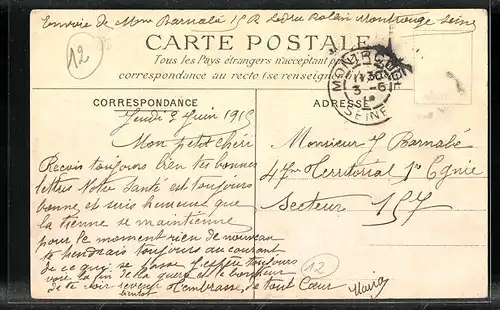 Envoie de Mme Barnabé 15 R Ledru Rolin Montrouge Seine
12
CARTE POSTALE
Tous les Pays étrangers n'acceptent pas
correspondance au recto (se renseigner
MONTROUGE
11 30
3 - 6
SEINE
CORRESPONDANCE
ADRESSE
Jeudi 2 Juin 1915
Mon petit chéri
Recois toujours bien tes bonnes
lettres Notre Santé est toujours
bonne et suis heureuse que
la tienne se maintienne
pour le moment rien de nouveau
te tiendrais toujours au courant
de ce qui se passe J'espère toujours
voir la fin de la guerre et le bonheur
de te voir revenir
bientot
t'embrasse de tout Cœur
Maria
Monsieur J Barnabé
4 Territorial 1e Cgnie
Secteur 157
12